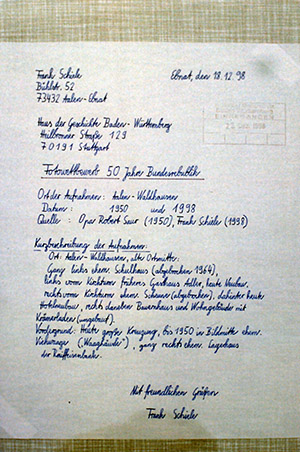 Frank Schiele
Ebnat, den 18.12.98
Bühlstr. 52
73432 Aalen-Ebnat
EINGEGANGEN
Haus der Geschichte Baden-Württemberg
Heilbronner Straße 129
70191 Stuttgart
Fotowettbewerb 50 Jahre Bundesrepublik
Ort der Aufnahmen: Aalen-Waldhausen
Daten: 1950 und 1998
Quelle: Opa Robert Saur (1950), Frank Schiele (1998)
Kurzbeschreibung der Aufnahmen:
Ort: Aalen-Waldhausen, alte Ortsmitte:
Ganz links ehem. Schulhaus (abgebrochen 1964),
links vom Kirchturm früheres Gasthaus Adler, heute Neubau,
rechts vom Kirchturm ehem. Scheuer (abgebrochen), dahinter heute
Hotelneubau, rechts daneben Bauernhaus und Wohngebäude mit
Krämerladen (umgebaut).
Vordergrund: Heute großer Kreuzung, bis 1950 in Bildmitte ehem.
Viehwaage ("Waaghäusle"), ganz rechts ehem. Lagerhaus
der Raiffeisenbank.
Mit freundlichen Grüßen
Frank Schiele